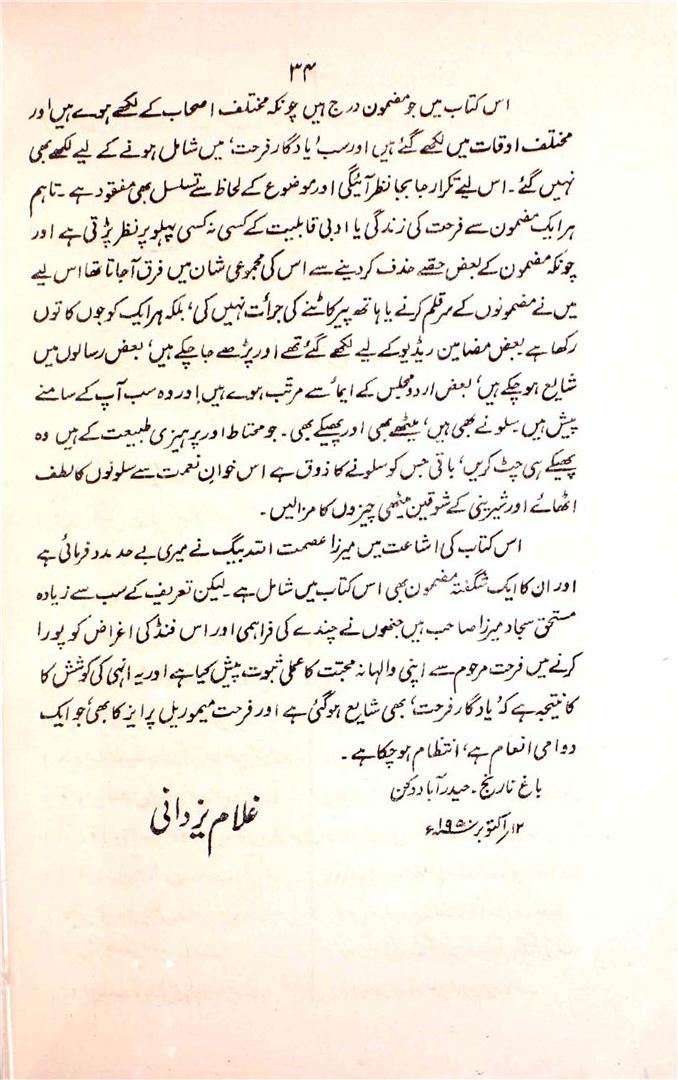 ۳۴
اس کتاب میں جو مضمون درج ہیں چونکہ مختلف اصحاب کے لکھے ہوے ہیں اور
مختلف اوقات میں لکھے گئے ہیں اور سب 'یادگار فرحت' میں شامل ہونے کے لیے لکھے بھی
نہیں گئے۔ اس لیے تکرار جابجا نظر آئیگی اور موضوع کے لحاظ سے تسلسل بھی مفقود ہے۔ تاہم
ہر ایک مضمون سے فرحت کی زندگی یا ادبی قابلیت کے کسی نہ کسی پہلو پر نظر پڑتی ہے اور
چونکہ مضمون کے بعض حصّے حذف کر دینے سے اس کی مجموعی شان میں فرق آجاتا تھا اس لیے
میں نے مضمونوں کے سر قلم کرنے یا ہاتھ پیر کاٹنے کی جرأت نہیں کی، بلکہ ہر ایک کو جوں کا توں
رکھا ہے بعض مضامین ریڈیو کے لیے لکھے گئے تھے اور پڑھے جا چکے ہیں، بعض رسالوں میں
شایع ہو چکے ہیں، بعض اردو مجلس کے ایما سے مرتب ہوے ہیں اور وہ سب آپ کے سامنے
پیش ہیں۔ سلونے بھی ہیں، میٹھے بھی اور پھیکے بھی۔ جو محتاط اور پرہیزی طبیعت کے ہیں وہ
پھیکے ہی چٹ کریں، باقی جس کو سلونے کا ذوق ہے اس خوانِ نعمت سے سلونوں کا لطف
اٹھائے اور شیرینی کے شوقین میٹھی چیزوں کا مزا لیں۔
اس کتاب کی اشاعت میں میرزا عصمت اللہ بیگ نے میری بے حد مدد فرمائی ہے
اور ان کا ایک شگفتہ مضمون بھی اس کتاب میں شامل ہے۔ لیکن تعریف کے سب سے زیادہ
مستحق سجاد میرزا صاحب ہیں جنھوں نے چندے کی فراہمی اور اس فنڈ کی اغراض کو پورا
کرنے میں فرحت مرحوم سے اپنی والہانہ محبّت کا عملی ثبوت پیش کیا ہے اور یہ انہی کی کوشش کا
کا نتیجہ ہے کہ 'یادگار فرحت' بھی شایع ہو گئی ہے اور فرحت میموریل پرایز کا بھی، جو ایک
دوامی انعام ہے، انتظام ہو چکا ہے۔
باغ نارنج۔ حیدرآباد دکن
۱۲؍ اکتوبر ۱۹۵۰ء
غلام یزدانی